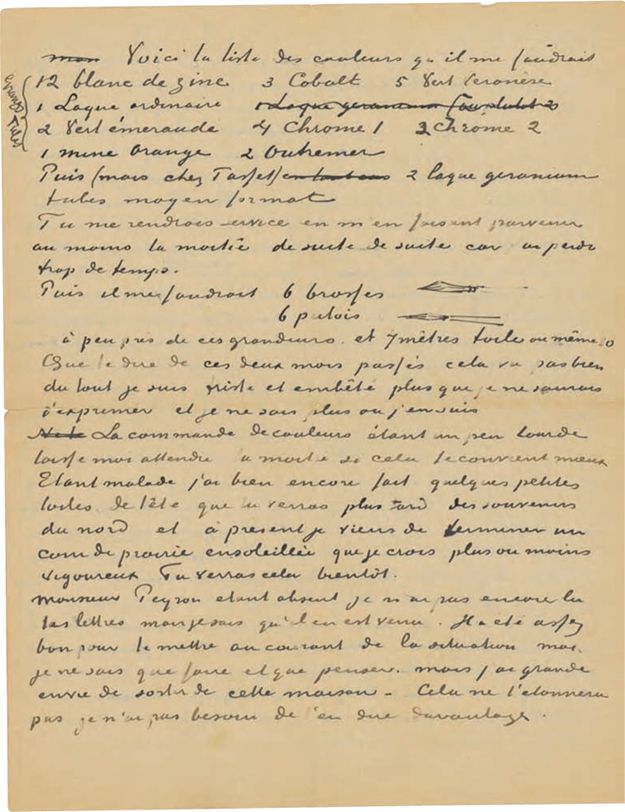 Voici la liste des couleurs qu'il me faudrait
grands tubes
12 blanc de zinc 3 Cobalt 5 Vert Veronèse
1 Laque ordinaire
2 Vert émeraude 4 Chrome 1 3 Chrome 2
1 mine Orange 2 Outremer
Puis (mais chez Tasset) 2 laque geranium
tubes moyen format
Tu me rendrais service en m'en faisant parvenir
au moins la moitié de suite de suite car ai perdu
trop de temps.
Puis il me faudrait 6 brosses
6 putois
à peu près de ces grandeurs et 7 mètres toile ou même 10
Que te dire de ces deux mois passés cela va pas bien
du tout je suis triste et embêté plus que je ne saurais
t'exprimer et je ne sais plus où j'en suis
La commande de couleurs étant un peu lourde
laisse moi attendre la moitié si cela te convient mieux
Etant malade j'ai bien encore fait quelques petites
toiles de tête que tu verras plus tard des souvenirs
du nord et à présent je viens de terminer un
coin de prairie ensoleillée que je crois plus ou moins
vigoureux Tu verras cela bientôt.
Monsieur Peyron etant absent je n'ai pas encore lu
tes lettres mais je sais qu'il en est venu. Il a été assez
bon pour te mettre au courant de la situation moi
je ne sais que faire et que penser. mais j'ai grande
envie de sortir de cette maison – Cela ne t'etonnera
pas je n'ai pas besoin de t'en dire davantage.